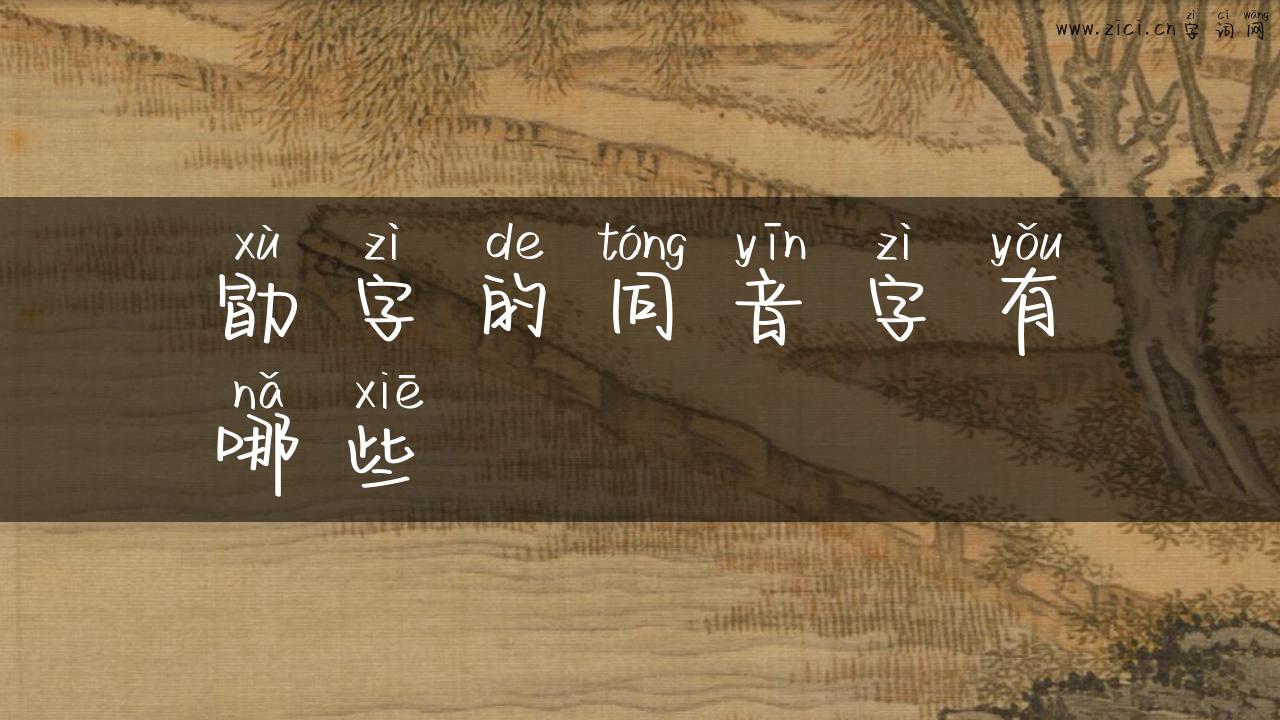 zì cí wǎng
www.zici.cn字词网
xù zì de tóng yīn zì yǒu
勖字的同音字有
nǎ xiē
哪些